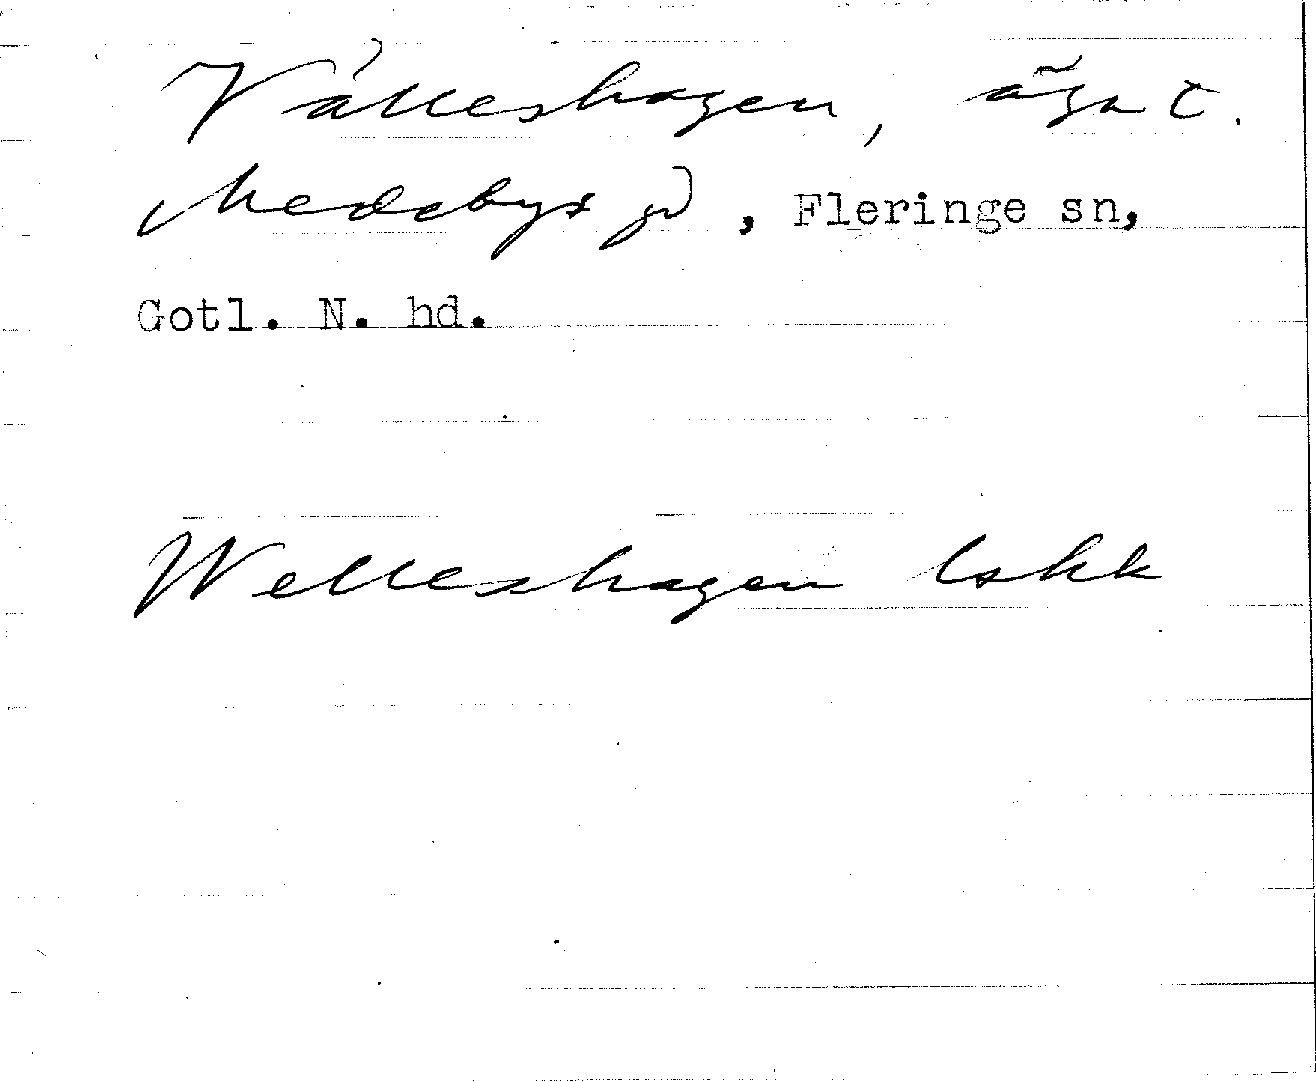 Välleshagen, äga t.
Medebys gd, Fleringe sn,
Gotl. N. hd.
Welleshagen lskk